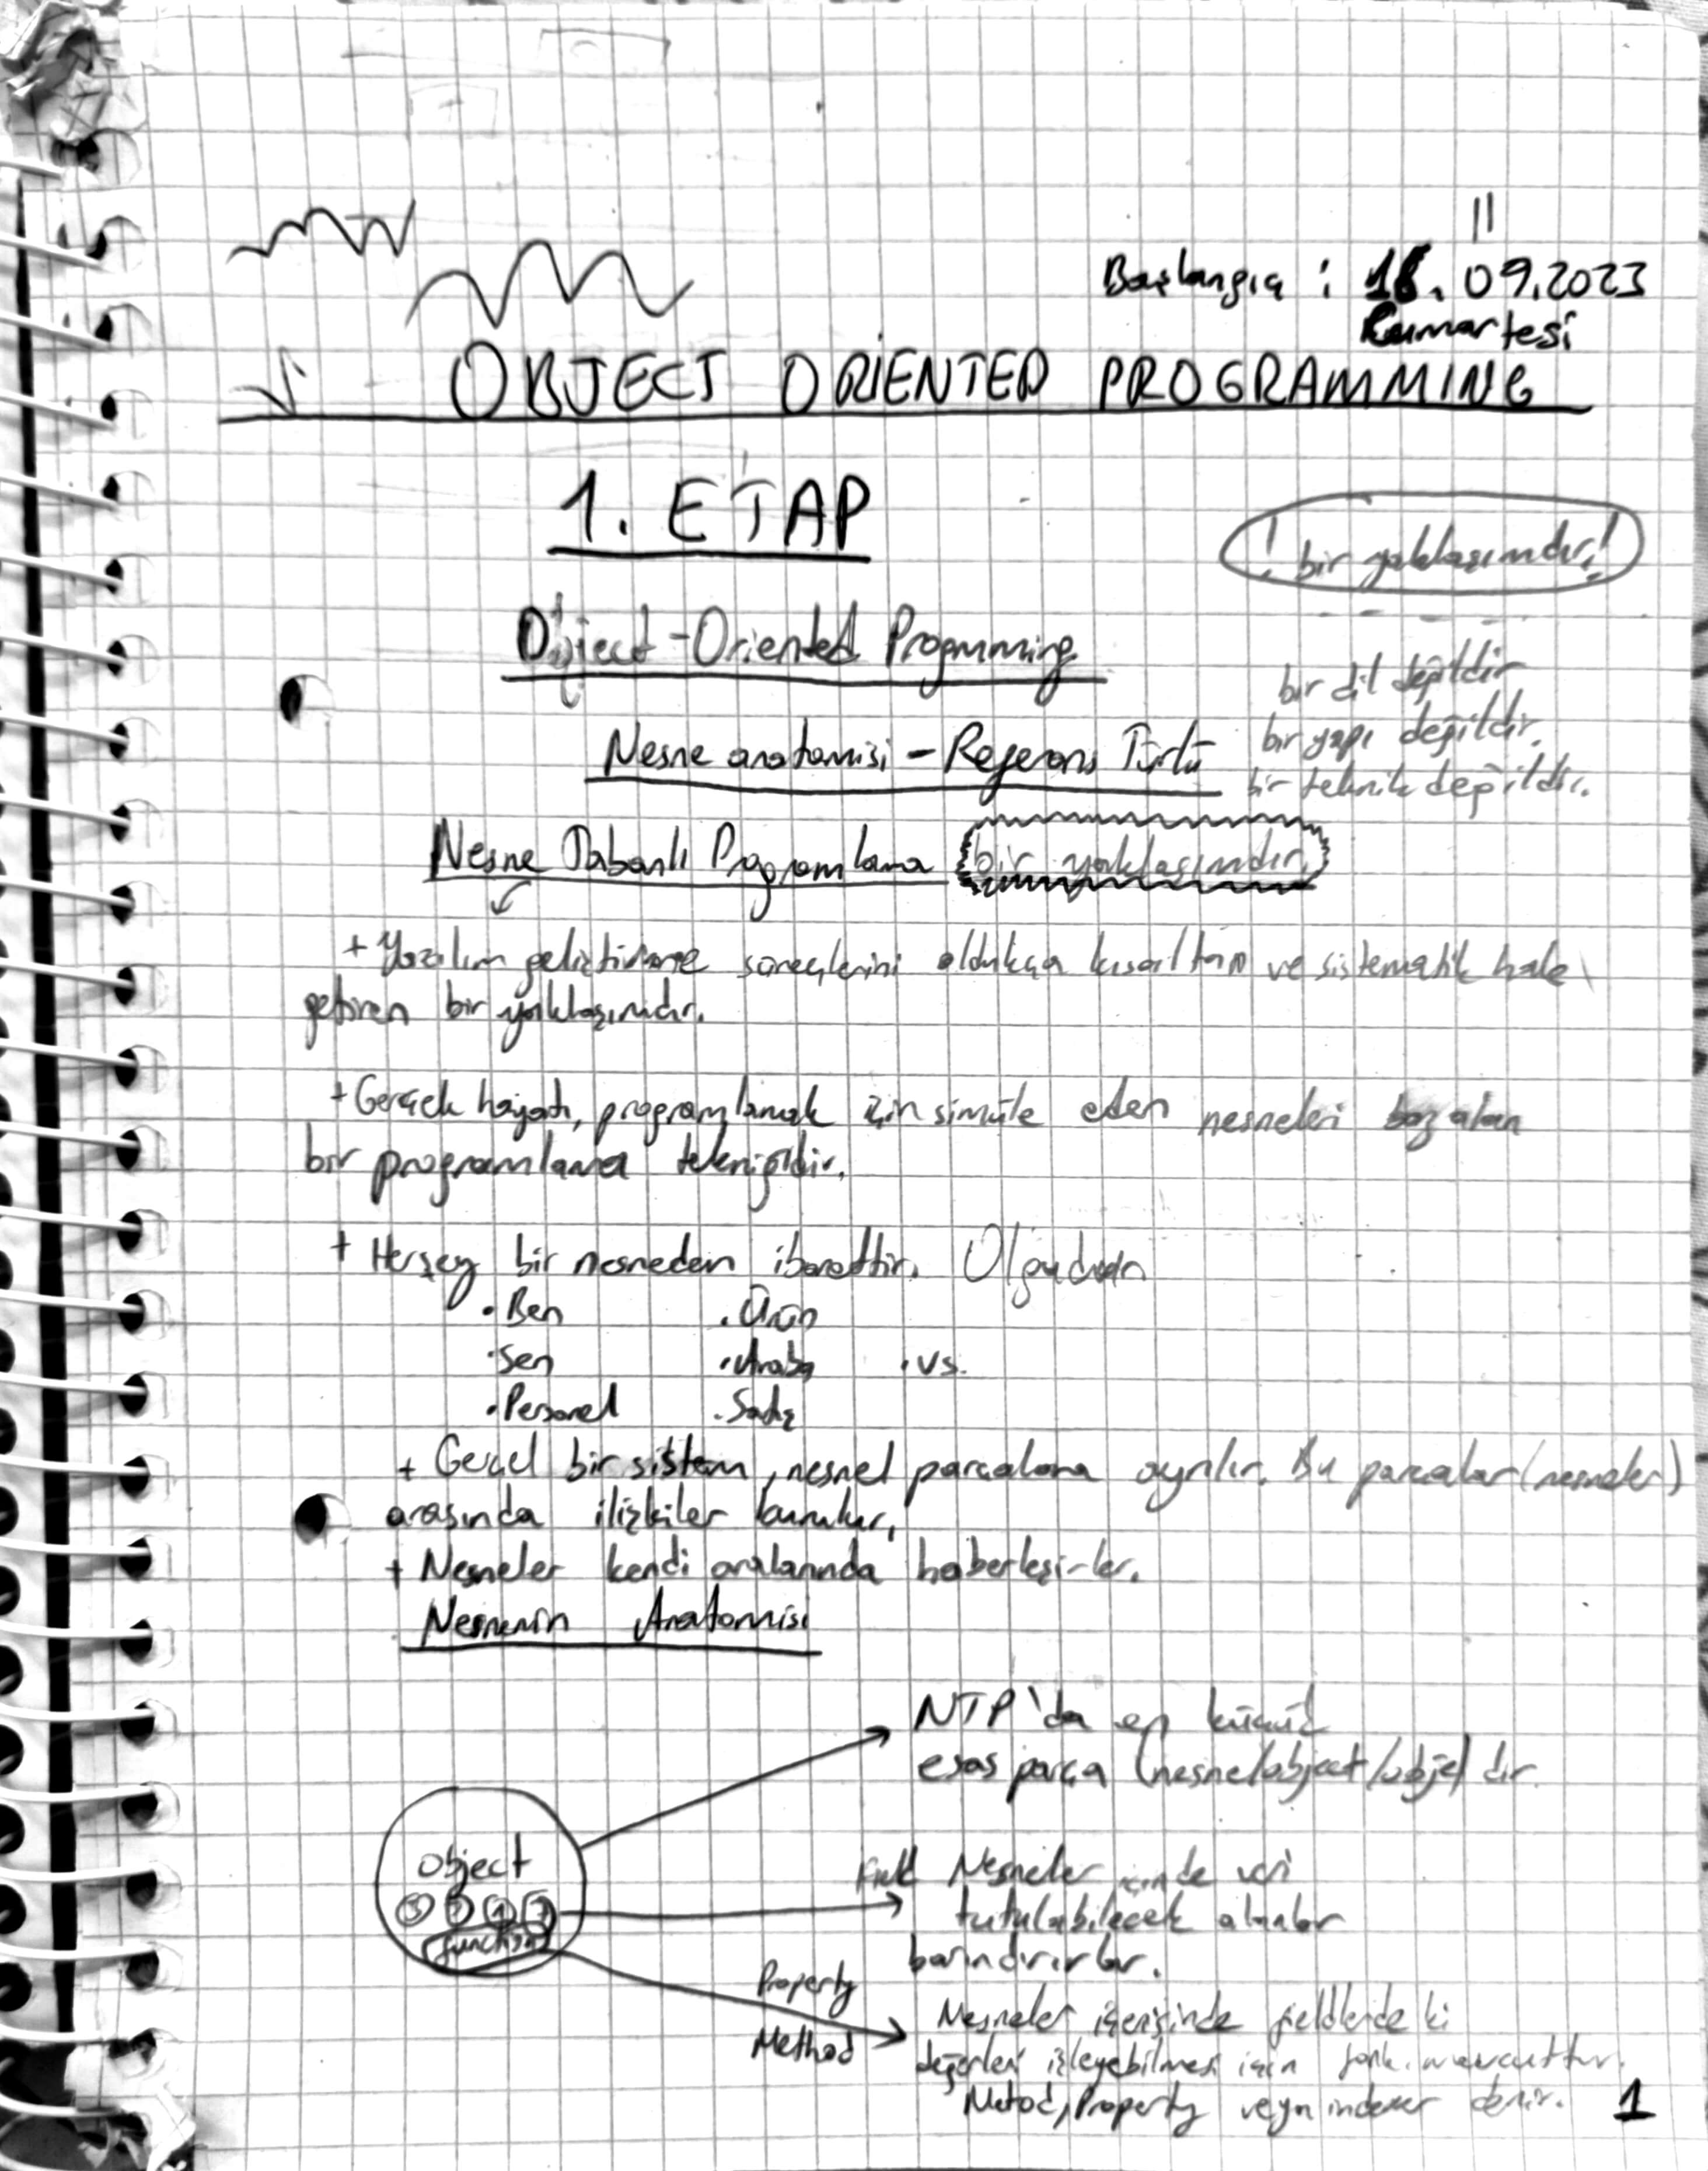 Başlangıç : 16.09.2023
Cumartesi
OBJECT ORIENTED PROGRAMMING
1. ETAP
! bir yaklaşımdır!
Object-Oriented Progmming
bir dil değildir
bir yapı değildir.
bir teknik değildir.
Nesne anatomisi - Referans Türlü
Nesne Tabanlı Programlama bir yaklaşımdır.
+ Yazılım geliştirme süreçlerini oldukça kısaltan ve sistematik hale
getiren bir yaklaşımdır.
+ Gerçek hayatı, programlamak için simüle eden nesneleri baz alan
bir programlama tekniğidir.
+ Herşey bir nesneden ibarettir. Olgudan
• Ben • Ürün
• Sen • Araba • vs.
• Personel • Satış
+ Genel bir sistem, nesnel parçalara ayrılır. Bu parçalar (nesneler)
arasında ilişkiler kurulur.
+ Nesneler kendi aralarında haberleşirler.
Nesnenin Anatomisi
NTP'da en küçük
esas parça (nesne/object/obje) dir.
object
function
Field Nesneler içinde veri
tutulabilecek alanlar
barındırırlar.
Property
Method
Nesneler içerisinde fieldlerde ki
değerleri işleyebilmesi için fonk. mevcuttur.
Metod, Property veya indexer denir.
1